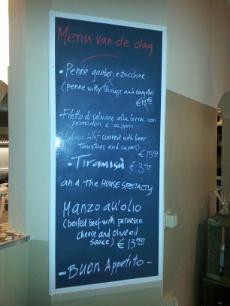 Menu van de dag
• Penne gamberi e zucchine
(penne with shrimps and
€
Filetto di salmone alla birra con
pomodori e capperi
cooked with beer
tomatoes and capers) €
• Tiramisù € 3,50
and the HOUSE SPECIALTY
Manzo all'olio
(boiled beef with parmesan
cheese and olive oil
sauce) € 13,50
- Buon Appetito -